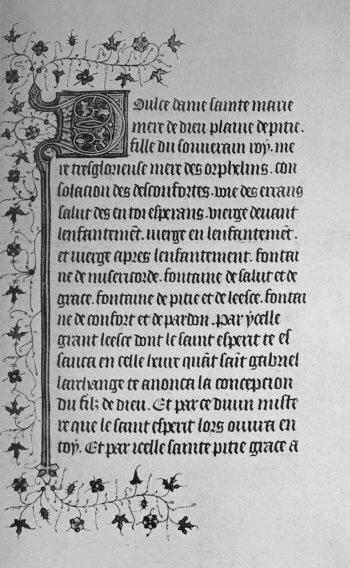 Doulce dame sainte marie
mere de dieu plaine de pitie.
fille du souuerain roy. me
re tresglorieuse mere des orphelins. con
solacion des desconfortes. voie des errans
salut des en toi esperans. vierge deuant
lenfantemēt. vierge en lenfantemēt.
et vierge apres lenfantement. fontai
ne de misericorde. fontaine de salut et de
grace. fontaine de pitie et de leesce. fontai
ne de confort et de pardon. par ycelle
grant leesce dont le saint esperit te es
sauca en celle heure quāt saīt gabriel
larchange te anonca la conception
du filz de dieu. Et par ce diuin miste
re que le saint esperit lors ouura en
toy. Et par icelle sainte pitie grace a